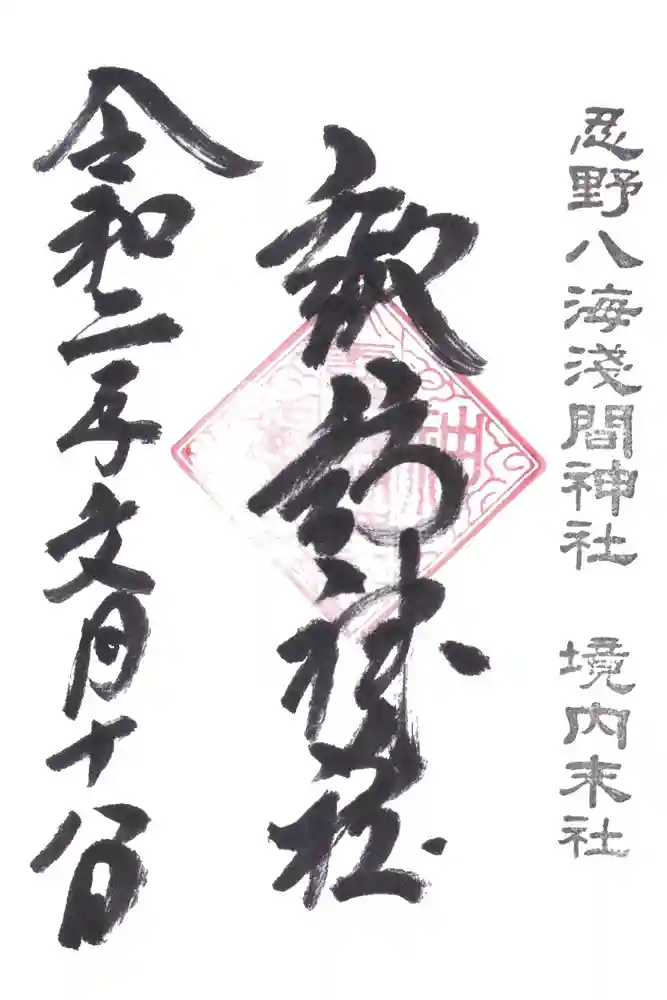 忍野八海淺間神社 境内末社
神社
令和二年文月十八日